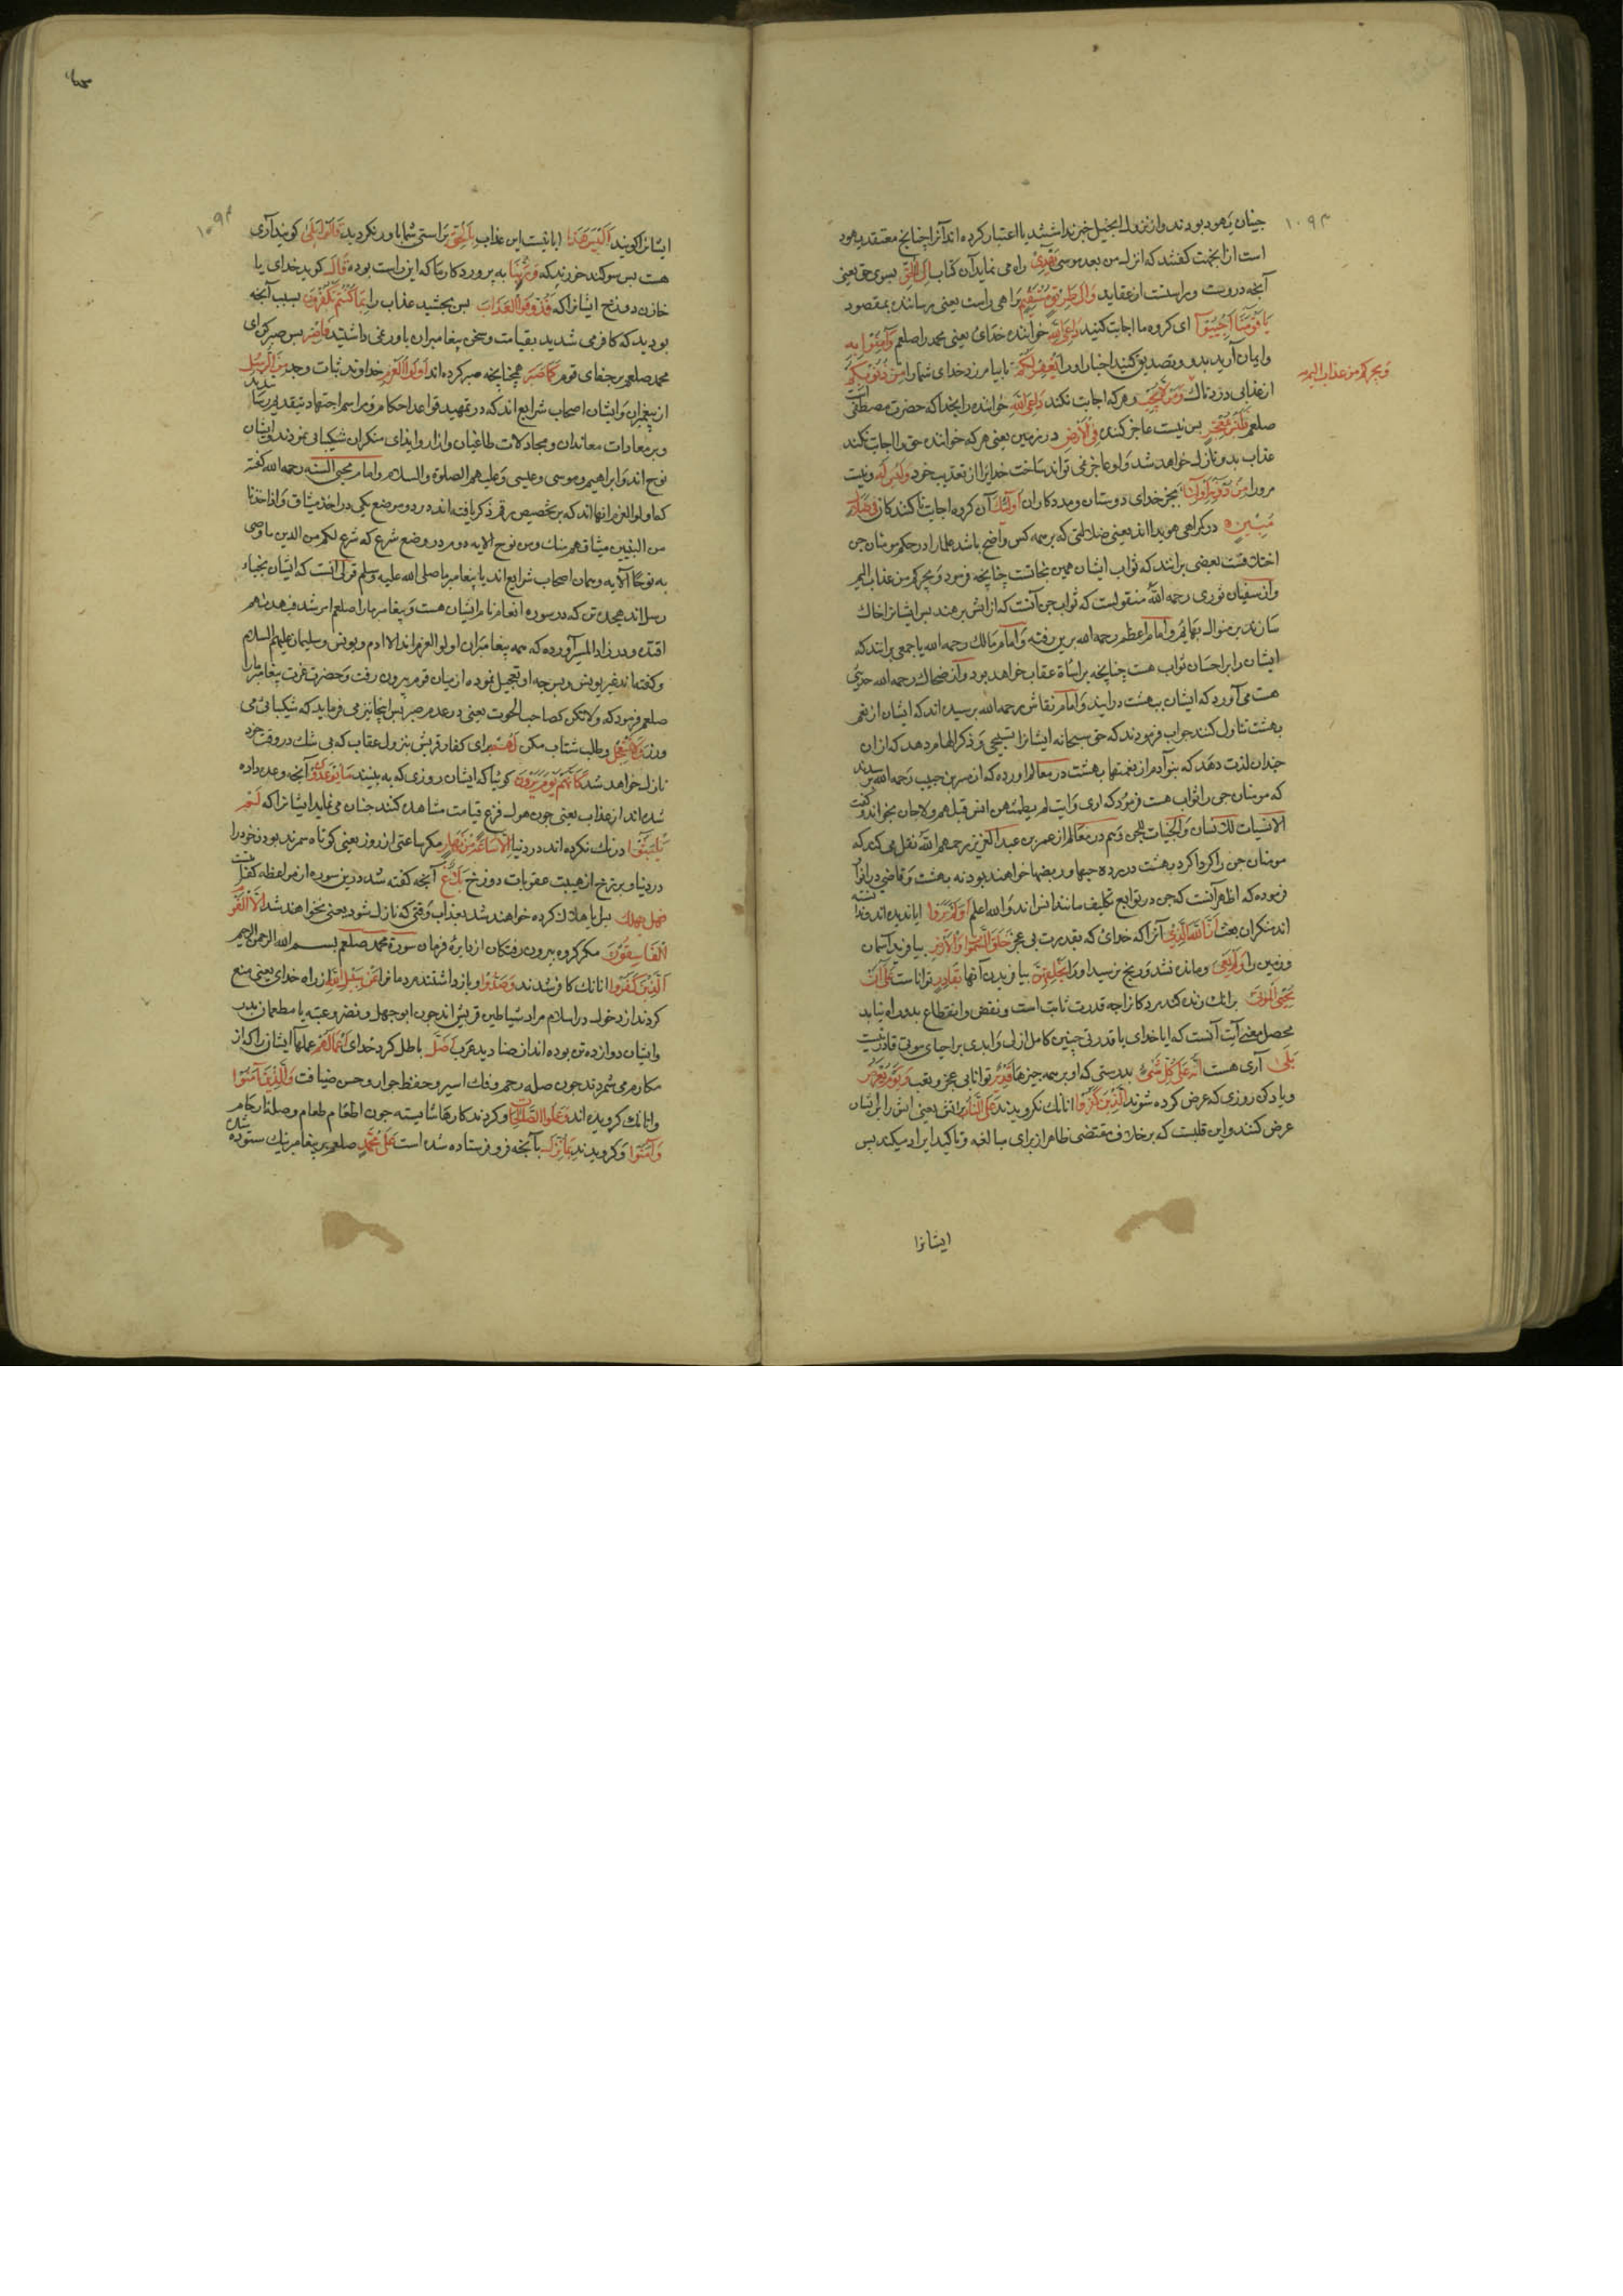 ۱۰۹۳
جنیان یهود بودند و از نزول انجیل خبر نداشتند یا اعتبار نکرده اند آنرا چنانچ معتقد یهود
است ازانجهت گفتند که انزل من بعد موسی یهدی راه می نماید آن کتاب الی الحق بسوی حق یعنی
آنچه درست و راستست از عقاید و الی طریق مستقیم و براهی راست یعنی رساننده بمقصود
یا قومنا اجیبوا ای کروه ما اجابت کنید داعی الله خواننده خدای یعنی محمد را صلعم و آمنوا به
و ایمان آرید بدو و تصدیق کنید اخبار او را یغفر لکم تا بیامرزد خدای شما را من ذنوبکم
ویجرکم من عذاب الیم
از عذابی دردناک و من لا یجب و هرکه اجابت نکند داعی الله خواننده را بخدا که حضرت مصطفی است
صلعم فلیس بمعجز پس نیست عاجز کننده فی الارض در زمین یعنی هرکه خواننده حق را اجابت نکند
عذاب بدو نازل خواهد شد و او عاجز نمی تواند ساخت خدایرا از تعذیب خود و لیس له و نیست
مرورا من دونه اولیا بجز خدای دوستان و مددکاران اولئک آن کروه اجابت ناکنندکان فی ضلال
مبین در کمراهی هویدااند یعنی ضلالتی که بر همه کس واضح باشد علما را در حکم مومنان جن
اختلافست بعضی برانند که ثواب ایشان همین نجاتست چنانچه فرمود و یجرکم من عذاب الیم
و از سفیان ثوری رحمه الله منقولست که ثواب جن آنست که از آتش برهند پس ایشانرا خاک
سازند بر منوال بهایم و امام اعظم رحمه الله برین رفته و امام مالک رحمه الله با جمعی برانند که
ایشان را بر احسان ثواب هست چنانچه بر اساة عقاب خواهد بود و از ضحاک رحمه الله حدیثی
هست می آورد که ایشان ببهشت درایند و امام نقاش رحمه الله پرسیده اند که ایشان از نعم
بهشت تناول کنند جواب فرمودند که حق سبحانه ایشانرا تسبیحی و ذکر الهام دهد که ازان
چندان لذت دهد که بنی آدم از نعمتهای بهشت در معالم اورده که از ضمرة بن حبیب رحمه الله پرسیدند
که مومنان جن را ثواب هست فرمود که آری و ایت لم یطمثهن انس قبلهم ولا جان بخواند و گفت
الانسیات للانسان و الجنیات للجن و هم در معالم از عمر بن عبد العزیز رحمهم الله نقل می کند که
مومنان جن را کرداکرد بهشت در پرده جبها و ربضها خواهند بود نه بهشت و قاضی در انوار
فرموده که اظهر آنست که جن در توابع تکلیف مانند انس اند و الله اعلم اولم یروا ایا ندیده اند و ندانسته
اند منکران بعث ان الله الذی آنرا که خدای که بقدرت بی عجز خلق السموات والارض بیافرید آسمان
و زمین را و لم یعی و مانده نشد و رنج نرسید او را بخلقهن بیافریدن آنها بقادر تواناست علی ان
یحیی الموتی برانک زنده کند مردکانرا چه قدرت ثابت است و نقض و انقطاع بدو راه نیابد
محصل معنی آیت آنست که ایا خدای با قدرتی چنین کامل ازلی و ابدی بر احیای موتی قادر نیست
بلی آری هست انه علی کل شئ بدرستی که او بر همه چیزها قدیر توانا بی عجز و تعب و یوم یعرض
و یاد کن روزی که عرض کرده شوند الذین کفروا انانک نکرویدند علی النار بر آتش یعنی آتش را بر ایشان
عرض کنند و این قلبست که بر خلاف مقتضی ظاهر از برای مبالغه و تاکید ایراد میکنند پس
ایشانرا
۱۰۹۴
ایشانرا کویند الیس هذا ایا نیست این عذاب بالحق براستی شما باور نکردید قالوا بلی کویند آری
هست پس سوکند خورند که و ربنا به پروردکار ما که این راست بوده قال کوید خدای یا
خازن دوزخ ایشانرا که فذوقوا العذاب پس بچشید عذاب را بما کنتم تکفرون بسبب آنچه
بودید که کافر می شدید بقیامت و سخن پیغامبران باور نمی داشتید فاصبر پس صبر کن ای
محمد صلعم بر جفای قوم کما صبر همچنانچه صبر کرده اند اولوا العزم خداوند ثبات و جد من الرسل
از پیغمبران و ایشان اصحاب شرایع اند که در تمهید قواعد احکام و مراسم اجتهاد
و بر معادات معاندان و مجادلات طاغیان و آزار و ایذای منکران شکیبائی نمودند و ایشان
نوح اند و ابراهیم و موسی و عیسی و علیهم الصلوة والسلام و امام محیی السنه رحمه الله کفته
که اولو العزم انها اند که بر تخصیص رقم ذکر یافته اند در دو موضع یکی در اخذ میثاق و اذا خذنا
من النبیین میثاقهم و منک و من نوح الایه دوم در وضع شرع که شرع لکم من الدین ما وصی
به نوحا الآیه و همان اصحاب شرایع اند با پیغامبر ما صلی الله علیه و سلم قولی آنست که ایشان نجباء
رسل اند هیجده تن که در سوره انعام نام ایشان هست و پیغامبر ما را صلعم امر شد فبهدیهم
اقتده و در زاد المسیر آورده که همه پیغامبران اولوالعزم اند الا ادم و یونس و سلیمان علیهم السلام
و کفته اند غیر یونس و پس چه او تعجیل نموده از میان قوم بیرون رفت و حضرت عزت پیغامبر ما را
صلعم فرمود که و لا تکن کصاحب الحوت یعنی در عدم صبر پس اینجا نیز می فرماید که شکیبائی می
ورز و لا تستعجل و طلب شتاب مکن لهم برای کفار قریش بنزول عقاب که بی شک در وقت خود
نازل خواهد شد کانهم یوم یرون کوئیا که ایشان روزی که به بینند ما یوعدون آنچه وعده داده
شده اند از عذاب یعنی چون هول و فزع قیامت مشاهده کنند چنان می نماید ایشانرا که لم
یلبثوا درنک نکرده اند در دنیا الا ساعة من نهار مکر ساعتی از روز یعنی کوتاه سمرند بودن خود را
در دنیا و برزخ از هیبت عقوبات دوزخ بلاغ آنچه کفته شد درین سوره از مواعظ کفایتست
فهل یهلک پس ایا هلاک کرده خواهند شد بعذاب وقتی که نازل شود یعنی نخواهند شد الا القوم
الفاسقون مکر کروه بیرون رفتکان از دایره فرمان سورة محمد صلعم بسم الله الرحمن الرحیم
الذین کفروا انانک کافر شدند و صدوا و باز داشتند مردمانرا عن سبیل الله از راه خدای یعنی منع
کردند از دخول در اسلام مراد شیاطین قریش اند چون ابو جهل و نضر و عتبه یا مطعمان بدر
و ایشان دوازده تن بوده اند از صنادید عرب اضل باطل کرد خدای اعمالهم عملهاء ایشانرا که از
مکارم می شمردند چون صله رحم و فک اسیر و حفظ جوار و حسن ضیافت و الذین آمنوا
و انانک کرویده اند و عملوا الصالحات و کردند کارهاء شایسته چون اطعام طعام و صله ارحام
و آمنوا و کرویدند بما نزل بآنچه فرو فرستاده شده است علی محمد صلعم بر پیغامبر نیک ستوده شده